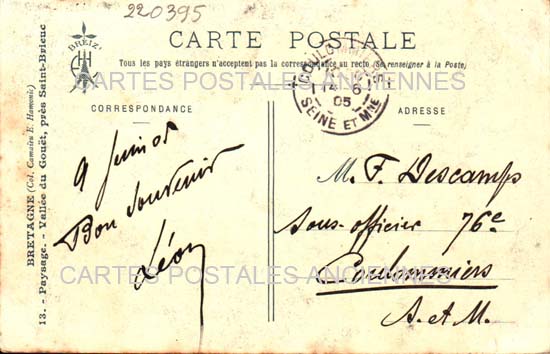 220395
BREIZ
CARTE POSTALE
Tous les pays étrangers n'acceptent pas la correspondance au recto (Se renseigner à la Poste)
CARTES POSTALES ANCIENNES
CORRESPONDANCE
ADRESSE
SEINE ET MNE
6
05
9 Juin 05
Bon souvenir
Léon
M. F. Descamps
Sous-officier 76e
Coulommiers
S. et M.
CARTES POSTALES ANCIENNES
BRETAGNE (Col. Camaïeu E. Hamonic)
13. - Paysage. - Vallée du Gouët, près Saint-Brieuc